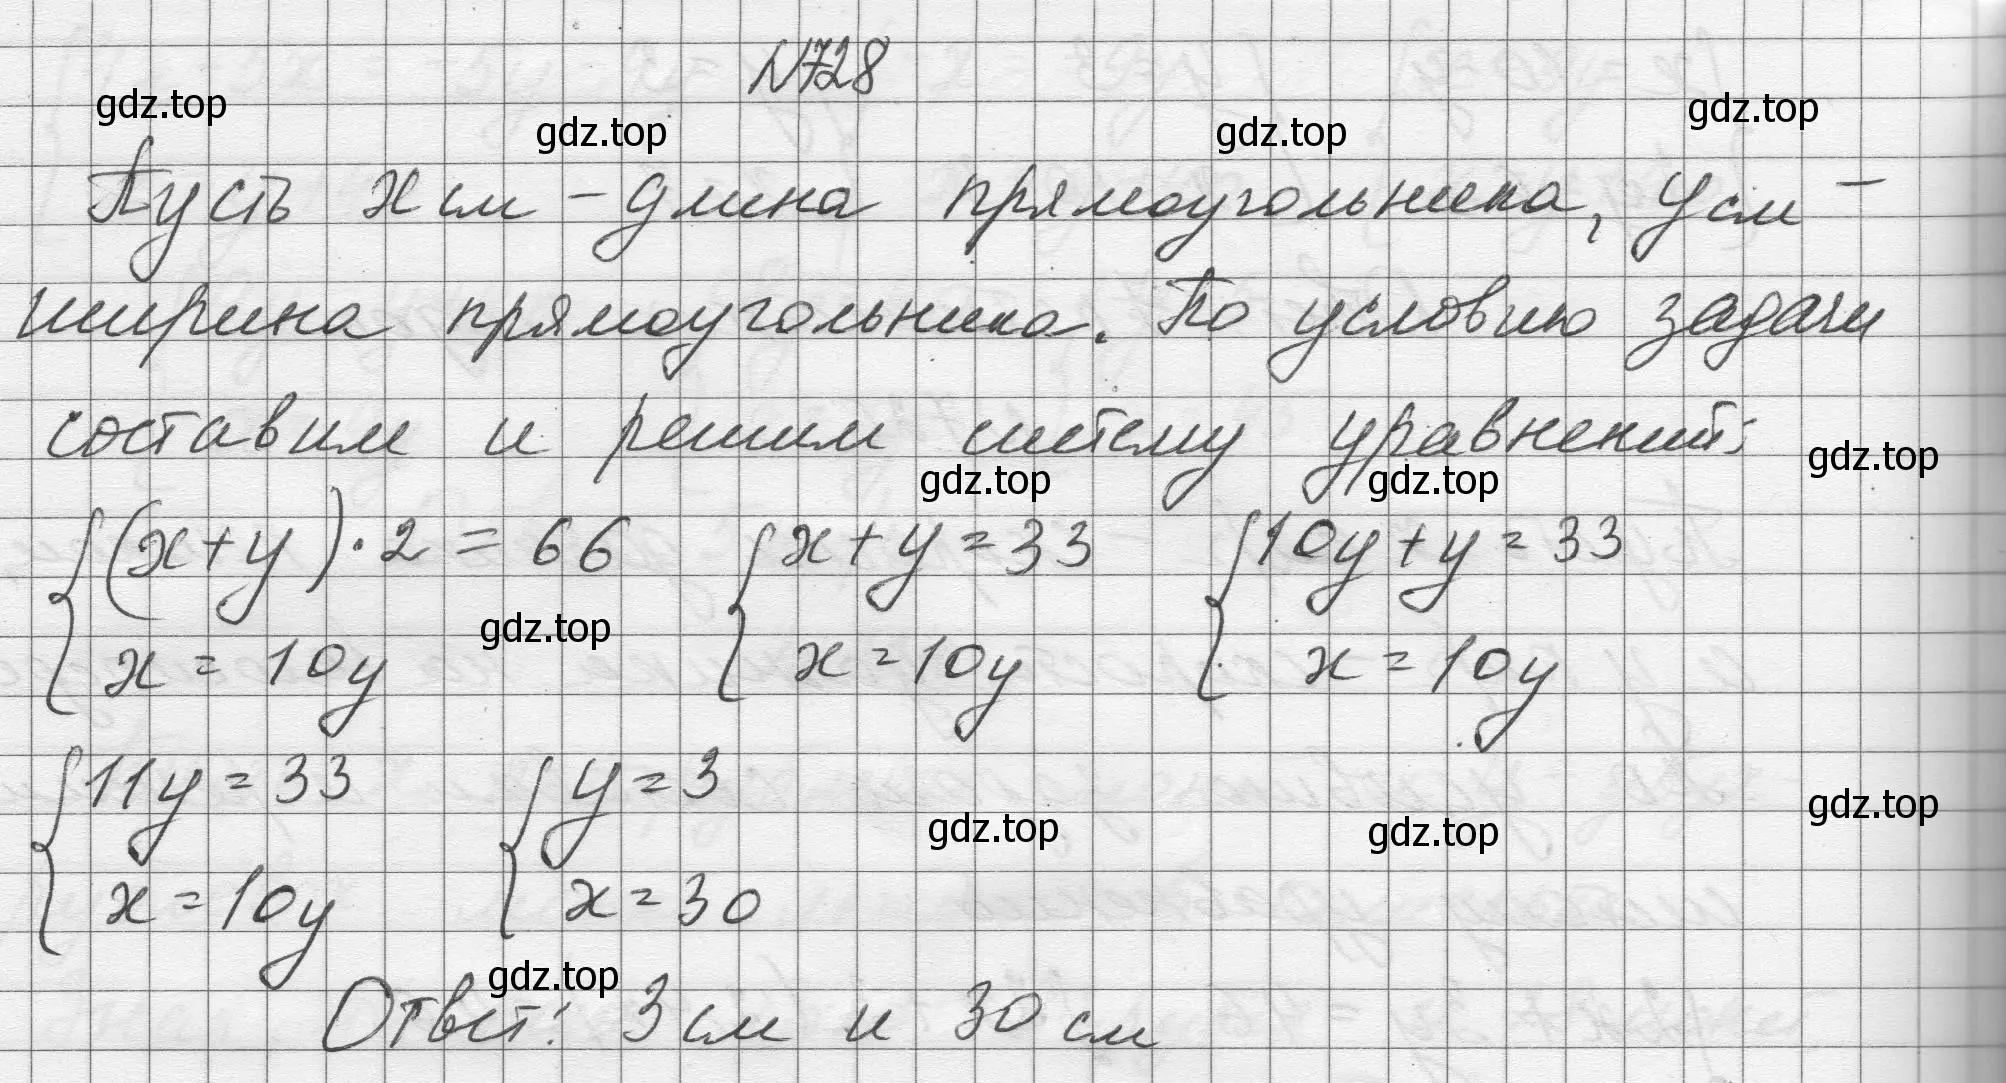 N728
gdz.top gdz.top gdz.top gdz.top
Пусть x см - длина прямоугольника, y см -
ширина прямоугольника. По условию задачи
составим и решим систему уравнений:
gdz.top gdz.top gdz.top
{(x+y)·2=66 {x+y=33 {10y+y=33
x=10y x=10y x=10y
gdz.top
{11y=33 {y=3
x=10y x=30
gdz.top gdz.top gdz.top
gdz.top
Ответ: 3 см и 30 см